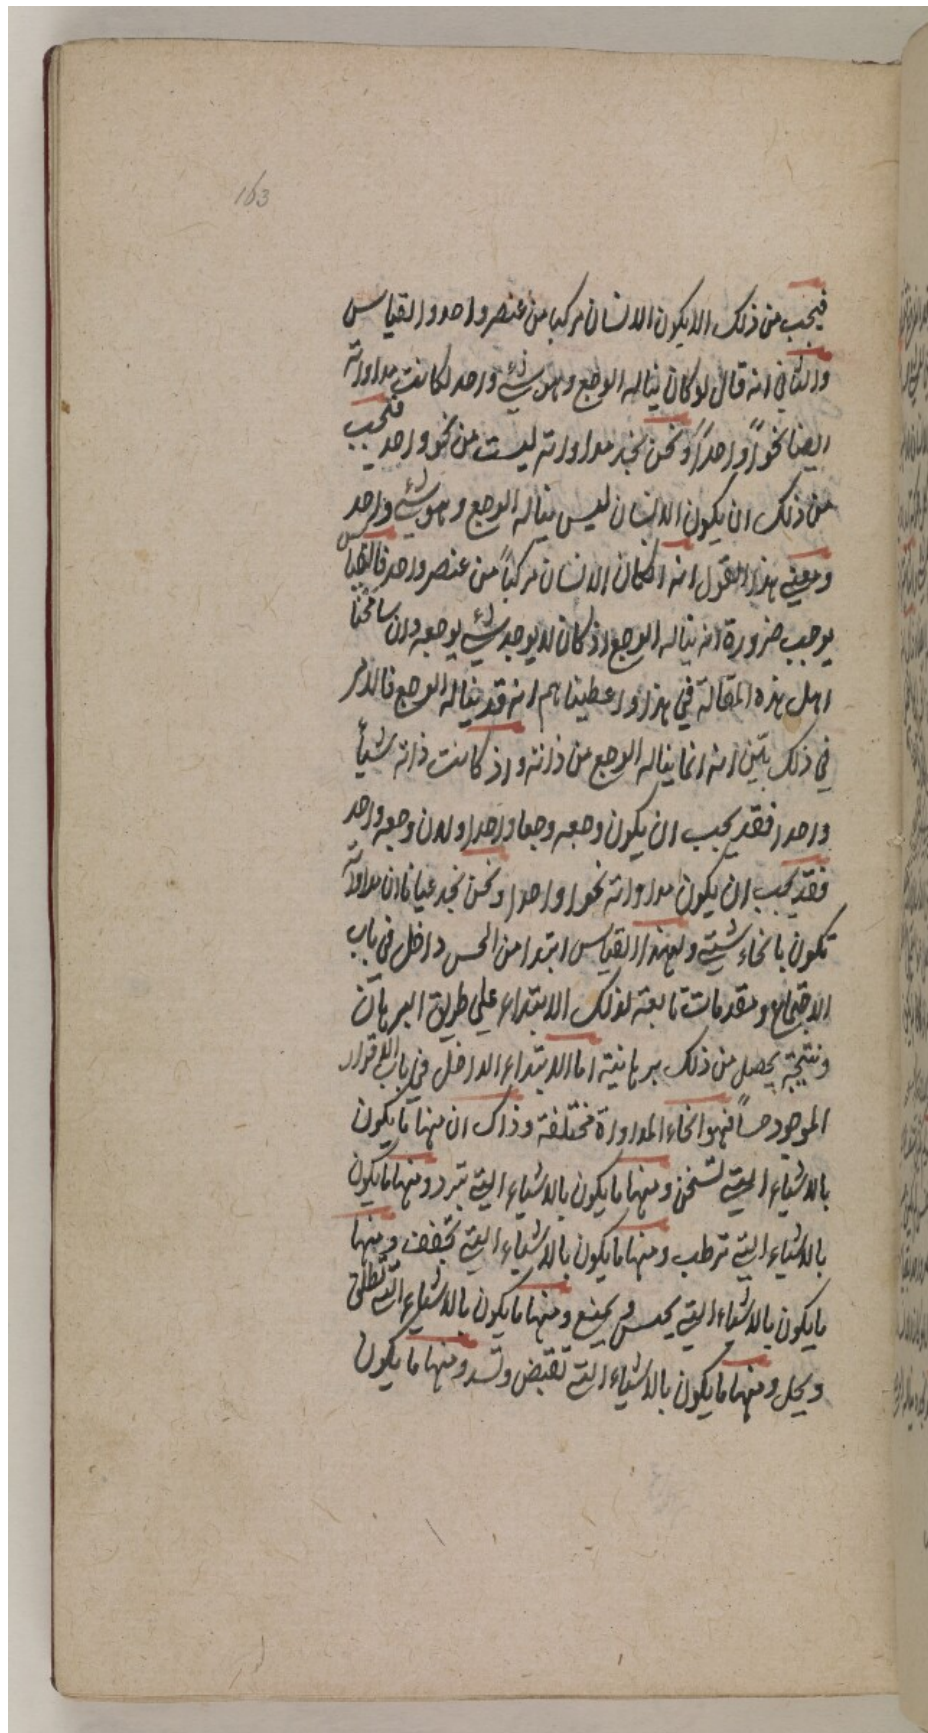 163
فيجب من ذلك الا يكون الانسان مركبا من عنصر واحد والقياس
والثاني انه قال لو كان يناله الوجع وهو شيء واحد لكانت مداواته
ايضا نحواً واحداً ونحن نجد مداواته ليست من نحو واحد فيجب
من ذلك ان يكون الانسان ليس يناله الوجع وهو شيء واحد
ومعنى هذا القول انه ان كان الانسان مركباً من عنصر واحد فالقياس
يوجب ضرورة انه يناله الوجع اذ كان لا يوجد شيء يوجعه وان سامحنا
اهل هذه المقالة في هذا واعطيناهم انه قد يناله الوجع فالامر
في ذلك بيّن انه انما يناله الوجع من ذاته واذ كانت ذاته شيأ
واحدا فقد يجب ان يكون وجعه وجعا واحدا ولان وجعه واحد
فقد يجب ان يكون مداواته نحوا واحدا ونحن نجد عيانا ان مداواته
تكون بانحاء شتى ولهذا القياس ابتدا من الحس داخل في باب
الاقتصاص ومقدمات تابعة لذلك الابتداء على طريق البرهان
ونتيجة يحصل من ذلك برهانية اما الابتداء الداخل في باب الاقرار
الموجود حساً فهو انحاء المداواة مختلفة وذاك ان منها ما يكون
بالاشياء التي تسخن ومنها ما يكون بالاشياء التي تبرد ومنها ما يكون
بالاشياء التي ترطب ومنها ما يكون بالاشياء التي تجفف ومنها
ما يكون بالاشياء التي يحبس ويمنع ومنها ما يكون بالاشياء التي تطلق
ويحل ومنها ما يكون بالاشياء التي تقبض وتسد ومنها ما يكون